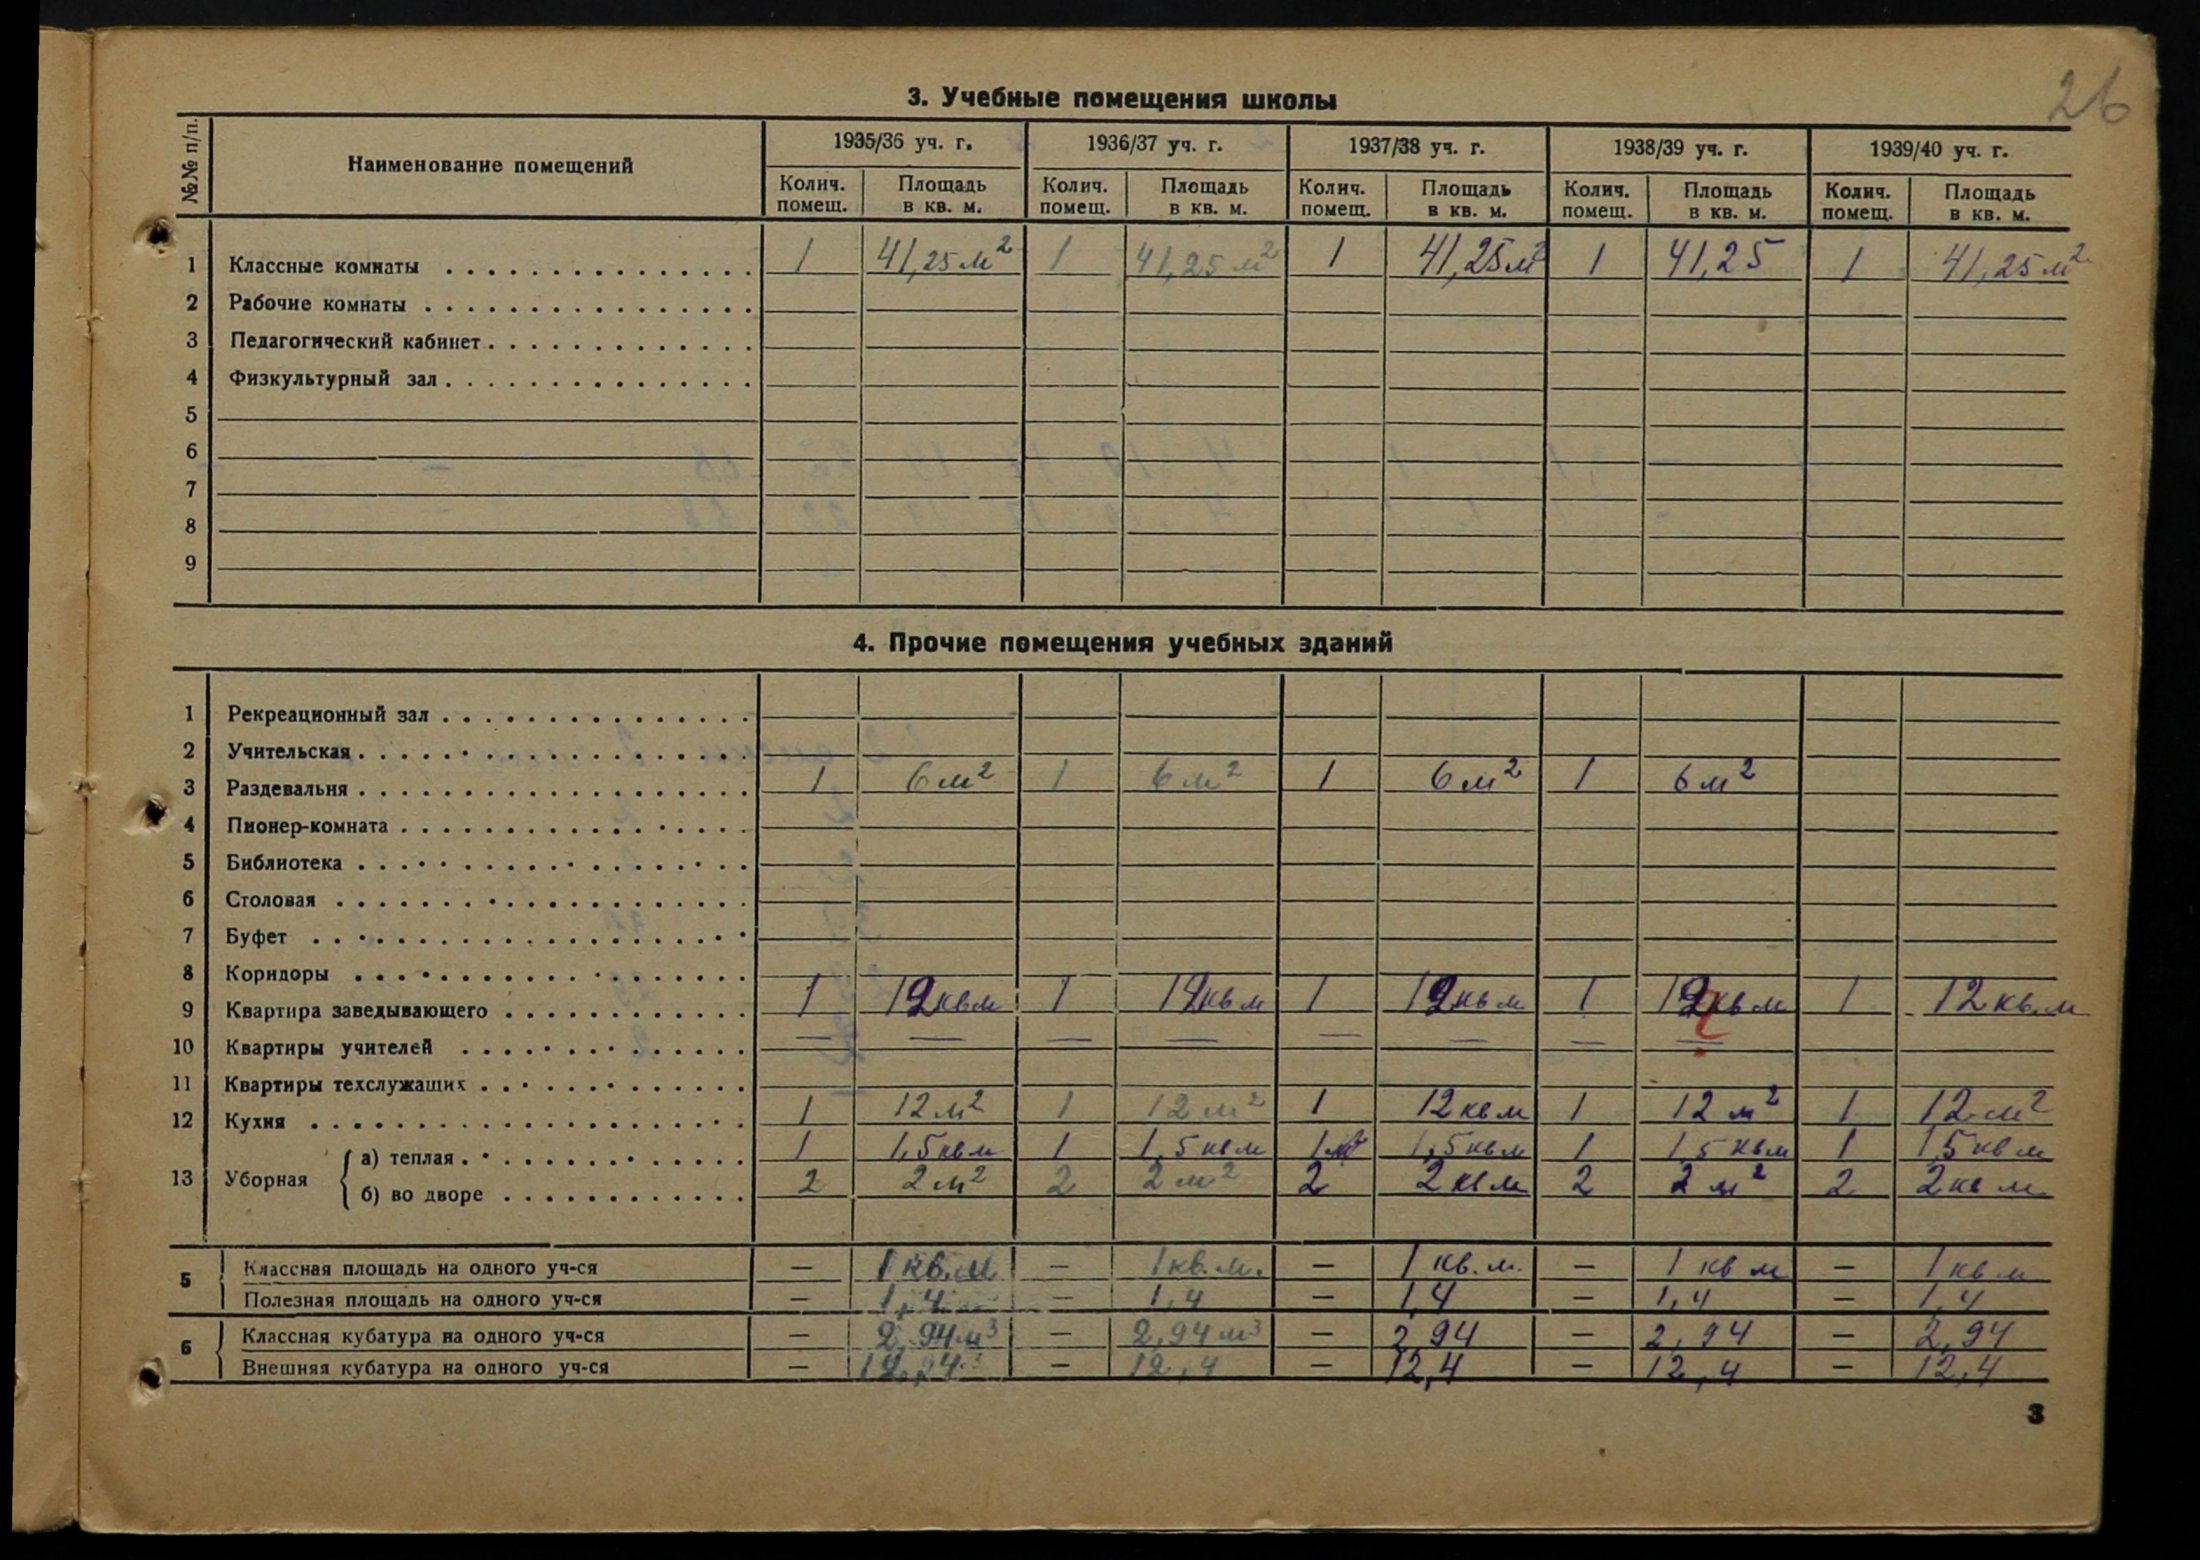 26
3. Учебные помещения школы
№№ п/п. Наименование помещений 1935/36 уч. г. 1936/37 уч. г. 1937/38 уч. г. 1938/39 уч. г. 1939/40 уч. г.
Колич. помещ. Площадь в кв. м. Колич. помещ. Площадь в кв. м. Колич. помещ. Площадь в кв. м. Колич. помещ. Площадь в кв. м. Колич. помещ. Площадь в кв. м.
1 Классные комнаты 1 41,25 м² 1 41,25 м² 1 41,25 м² 1 41,25 1 41,25 м²
2 Рабочие комнаты
3 Педагогический кабинет
4 Физкультурный зал
5
6
7
8
9
4. Прочие помещения учебных зданий
1 Рекреационный зал
2 Учительская
3 Раздевальня 1 6 м² 1 6 м² 1 6 м² 1 6 м²
4 Пионер-комната
5 Библиотека
6 Столовая
7 Буфет
8 Коридоры
9 Квартира заведывающего 1 12 кв м 1 12 кв м 1 12 кв м 1 12 кв м 1 12 кв. м
10 Квартиры учителей — — — — — — — —
11 Квартиры техслужащих
12 Кухня 1 12 м² 1 12 м² 1 12 кв м 1 12 м² 1 12 м²
13 Уборная а) теплая 1 1,5 кв м 1 1,5 кв м 1 1,5 кв м 1 1,5 кв м 1 1,5 кв м
б) во дворе 2 2 м² 2 2 м² 2 2 кв м 2 2 м² 2 2 кв м
5 Классная площадь на одного уч-ся — 1 кв. м — 1 кв. м. — 1 кв. м. — 1 кв м — 1 кв м
Полезная площадь на одного уч-ся — 1,4 — 1,4 — 1,4 — 1,4 — 1,4
6 Классная кубатура на одного уч-ся — 2,94 м³ — 2,94 м³ — 2,94 — 2,94 — 2,94
Внешняя кубатура на одного уч-ся — — 12,4 — 12,4 — 12,4 — 12,4
3